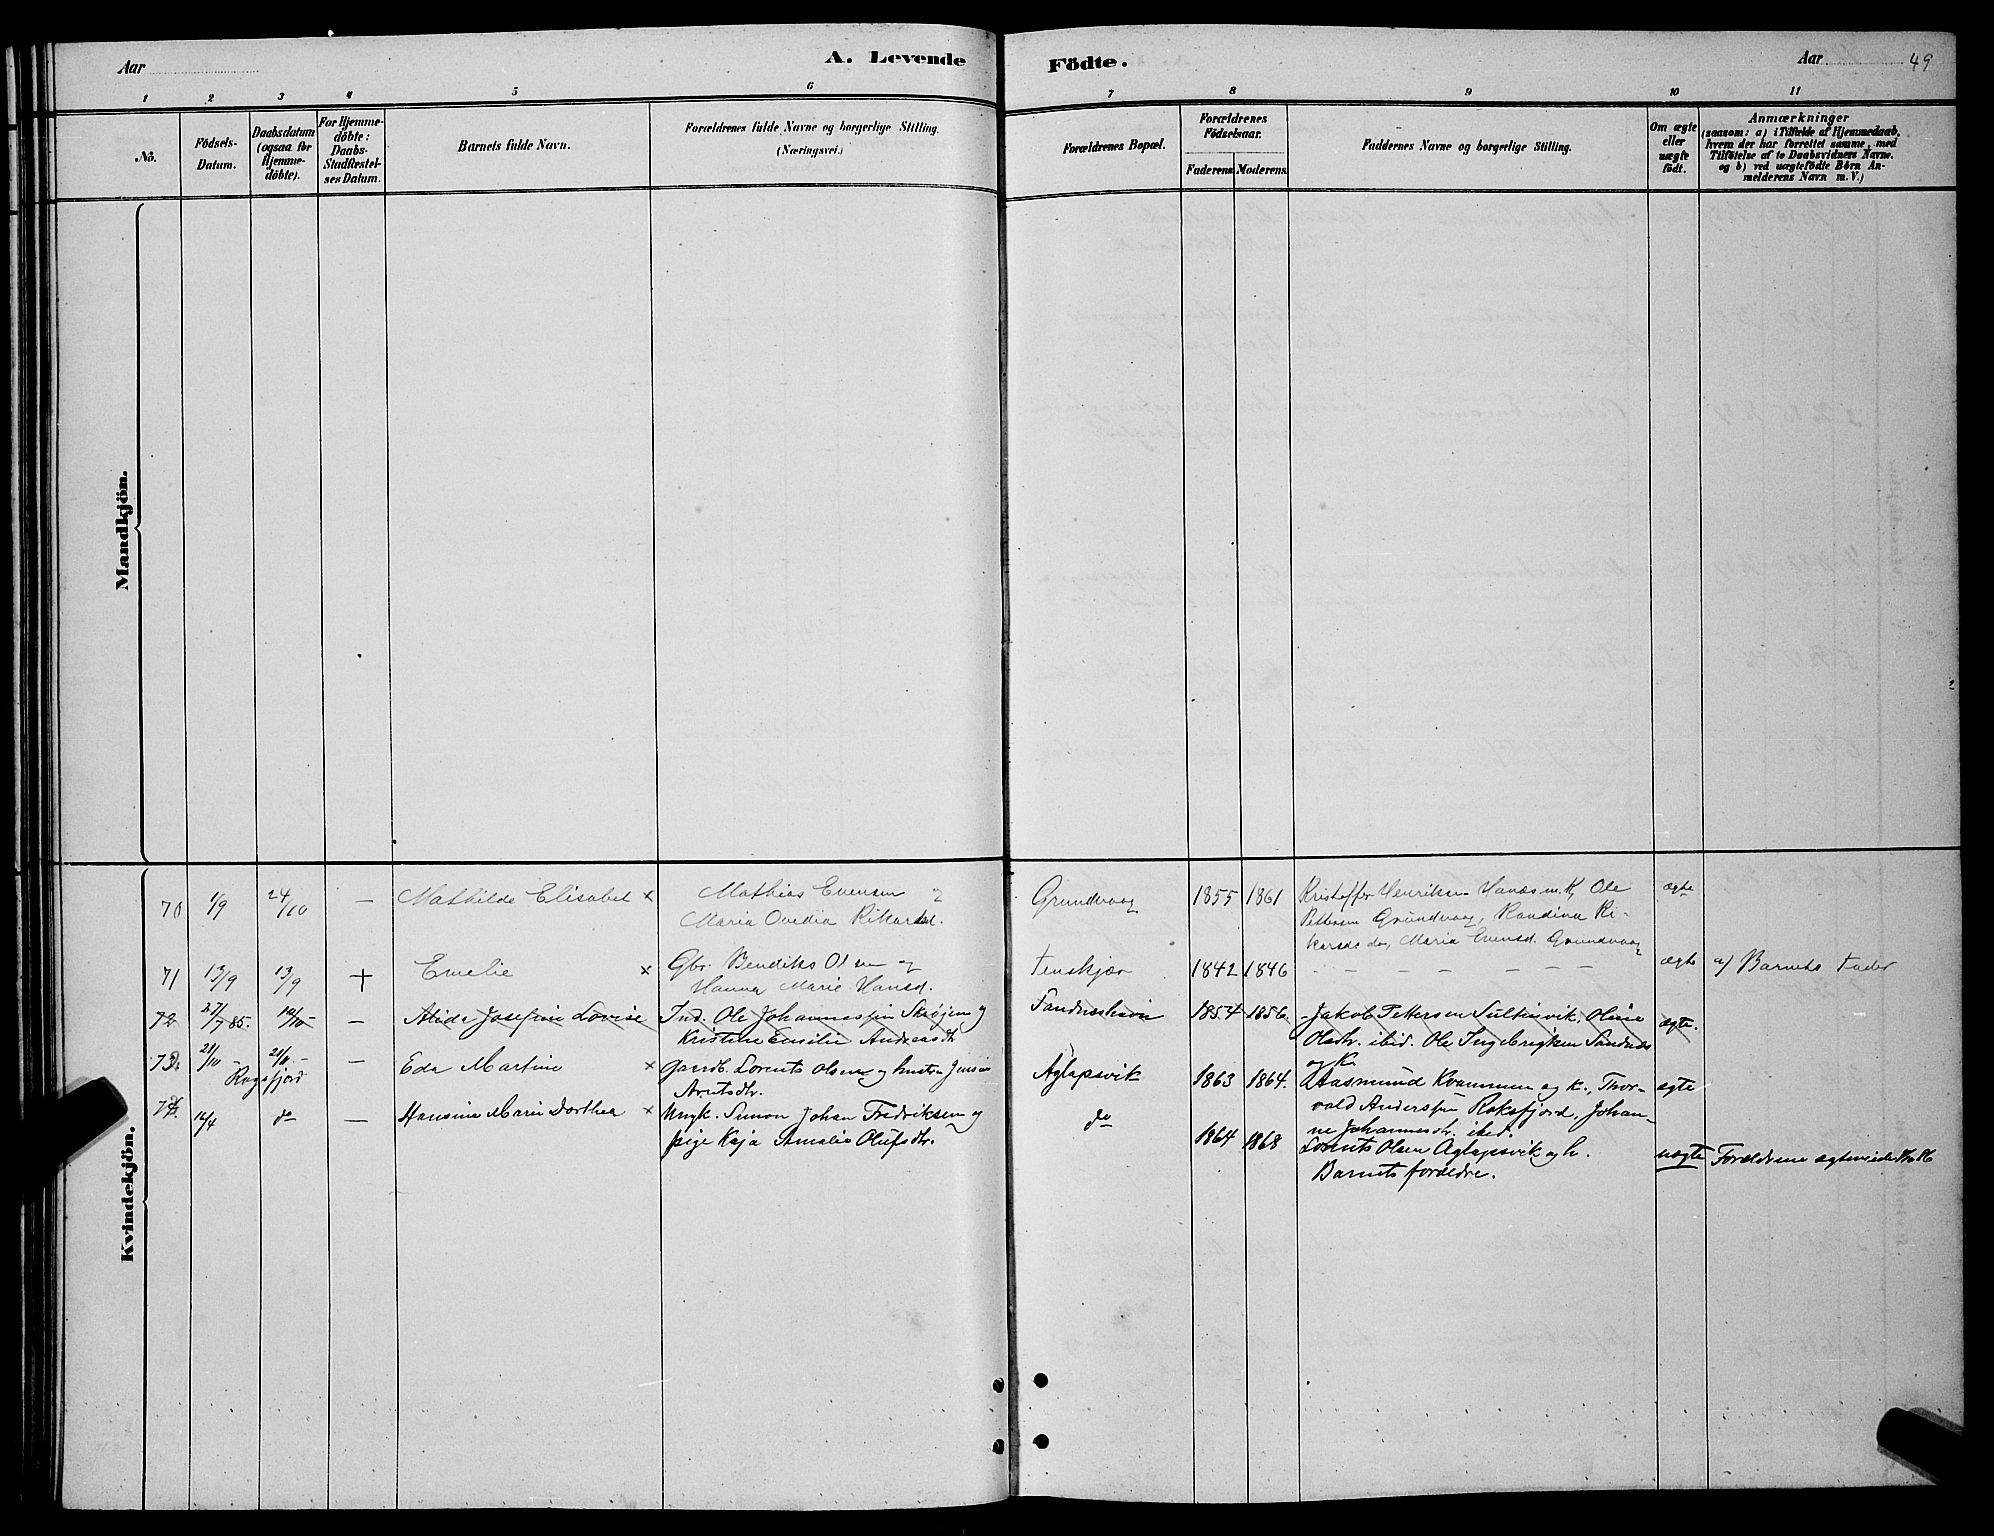 Aar
A. Levende
Födte.
Aar
49
1 2 3 4 5 6 7 8 9 10 11
No.
Födsels-
Datum.
Daabsdatum
(ogsaa for
Hjemme-
döbte).
For Hjemme-
döbte:
Daabs-
Stadfæstel-
ses Datum.
Barnets fulde Navn.
Forældrenes fulde Navne og borgerlige Stilling.
(Næringsvei.)
Forældrenes Bopæl.
Forældrenes
Födselsaar.
Faderens Moderens.
Faddernes Navne og borgerlige Stilling.
Om ægte
eller
uægte
födt.
Anmærkninger
(saasom: a) i Tilfælde af Hjemmedaab,
hvem der har forrettet samme, med
Tilföielse af to Daabsvidners Navne,
og b) ved uægtefödte Börn An-
melderens Navn m. V.)
Mandkjön.
Kvindekjön.
70 1/9 24/10 — Mathilde Elisabet × Mathias Evensen og
Maria Ovedia Rikardsd.
Grundvaag 1855 1861 Kristoffer Henriksen Hanæs m. K, Ole
Pettersen Grundvaag, Randina Ri-
karsds do, Maria Evensd. Grundvaag
ægte
71 13/9 13/9 + Emelie × Gbr. Bendiks Olsen og
Hanna Marie Hansd.
Tenskjær 1842 1846 — — — — — — ægte a) Barnets Fader
72 27/7 85. — Alida Josefine Lovise Ind. Ole Johannessen Skrøjen og
Kristine Emilie Andreasdtr
1854 1856. Jakob Pettersen Sultinvik, Oline
Olsdtr. ibid. Ole Ingebrigtsen Sandnes
og K.
ægte.
73. 21/10 — Eda Martine × Gaardb. Lorents Olsen og hustru Jensine
Arntsdtr.
Røgsfjord
Aglapsvik 1863 1864. Aasmund Kvammen og k., Thor-
vald Anderssen Roksfjord, Johan-
ne Johannesdtr. ibid.
ægte
74. 14/4 do — Hansine Marie Dorthea × Ungk. Simon Johan Fredriksen og
pige Kaja Amalie Olufsdtr.
do 1864 1868 Lorents Olsen Aglapsvik og h.
Barnets forældre.
uægte Forældrene ægteviede